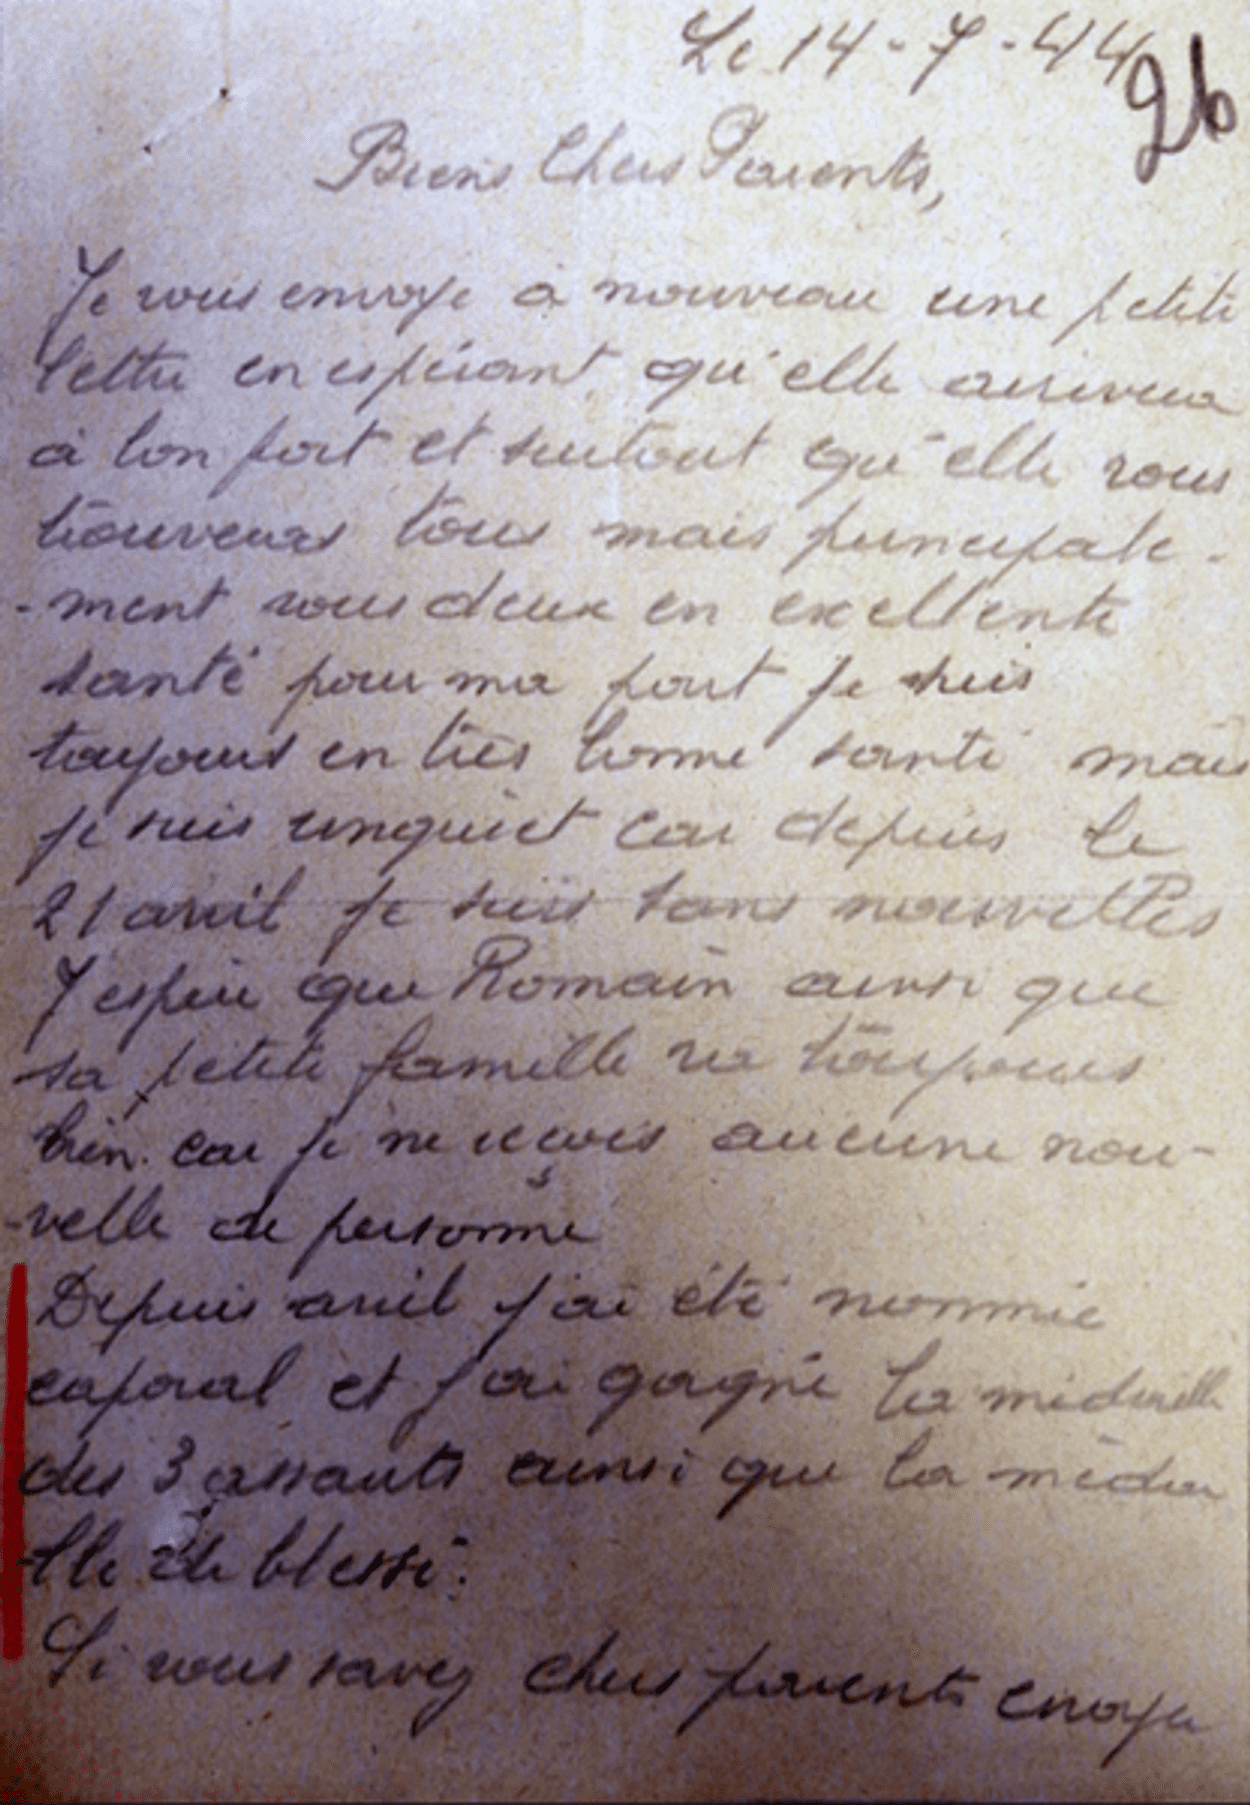 Le 14-7-44
26
Biens Chers Parents,
Je vous envoye a nouveau une petite
lettre en espérant qu'elle arrivera
à bon port et surtout qu'elle vous
trouveras tous mais principale-
-ment vous deux en excellente
santé pour ma part je suis
toujours en très bonne santé mais
je suis unquiet car depuis le
21 avril je suis sans nouvelles
J espère que Romain ainsi que
sa petite famille va toujours
bien. car je ne reçois aucune nou-
-velle de personne
Depuis avril j'ai été nommée
caporal et j'ai gagné la médaille
des 3 assauts ainsi que la méda
-lle de blessé.
Si vous savez chers parents envoyer